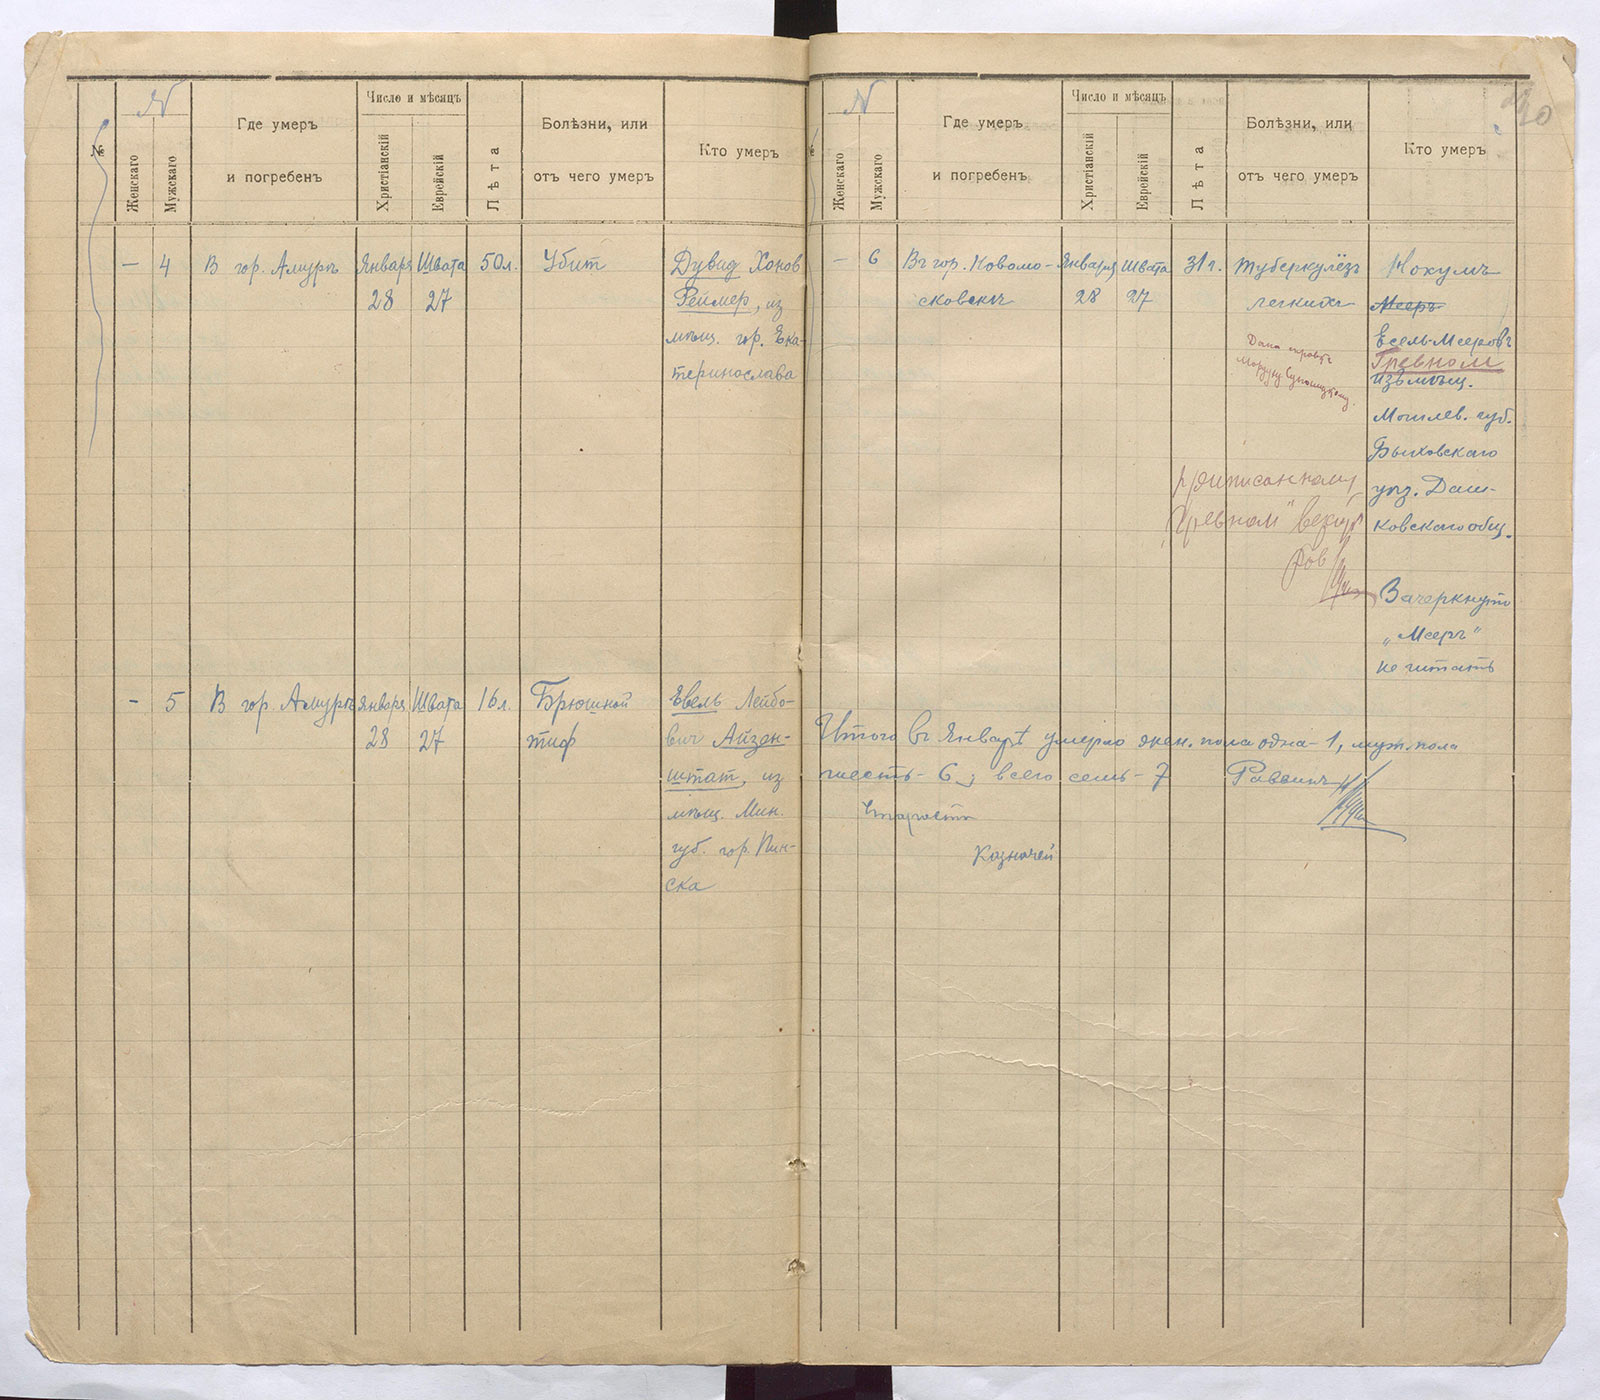 №
N
Женскаго
Мужскаго
Где умеръ
и погребенъ
Число и мѣсяцъ
Христіанскій
Еврейскій
Лѣта
Болѣзни, или
отъ чего умеръ
Кто умеръ
— 4 В гор. Амуръ Января Швата 50 л. Убит Дувид Хонов
28 27 Реймер, из
мѣщ. гор. Ека-
теринослава
- 5 В гор. Амуръ Января Швата 16 л. Брюшной Евель Лейбо-
28 27 тиф вич Айзен-
штат, из
мѣщ. Мин.
губ. гор. Пин-
ска
N
40
Женскаго
Мужскаго
Где умеръ
и погребенъ
Число и мѣсяцъ
Христіанскій
Еврейскій
Лѣта
Болѣзни, или
отъ чего умеръ
Кто умеръ
- 6 Въ гор. Новомо- Января Швата 31 г. Туберкулёзъ Нохумъ
сковскъ 28 27 легкихъ Мееръ
Есель-Мееровъ
Гревном
Дана
изъ мѣщ.
Могилев. губ.
Быховскаго
уѣз. Даш-
ковскаго общ.
приписанному
"Гревном" верить
Зачеркнуто
„Мееръ"
не читать
Итого въ Январѣ умерло жен. пола одна - 1, муж. пола
шесть - 6; всего семь - 7 Раввинъ
Староста
Казначей